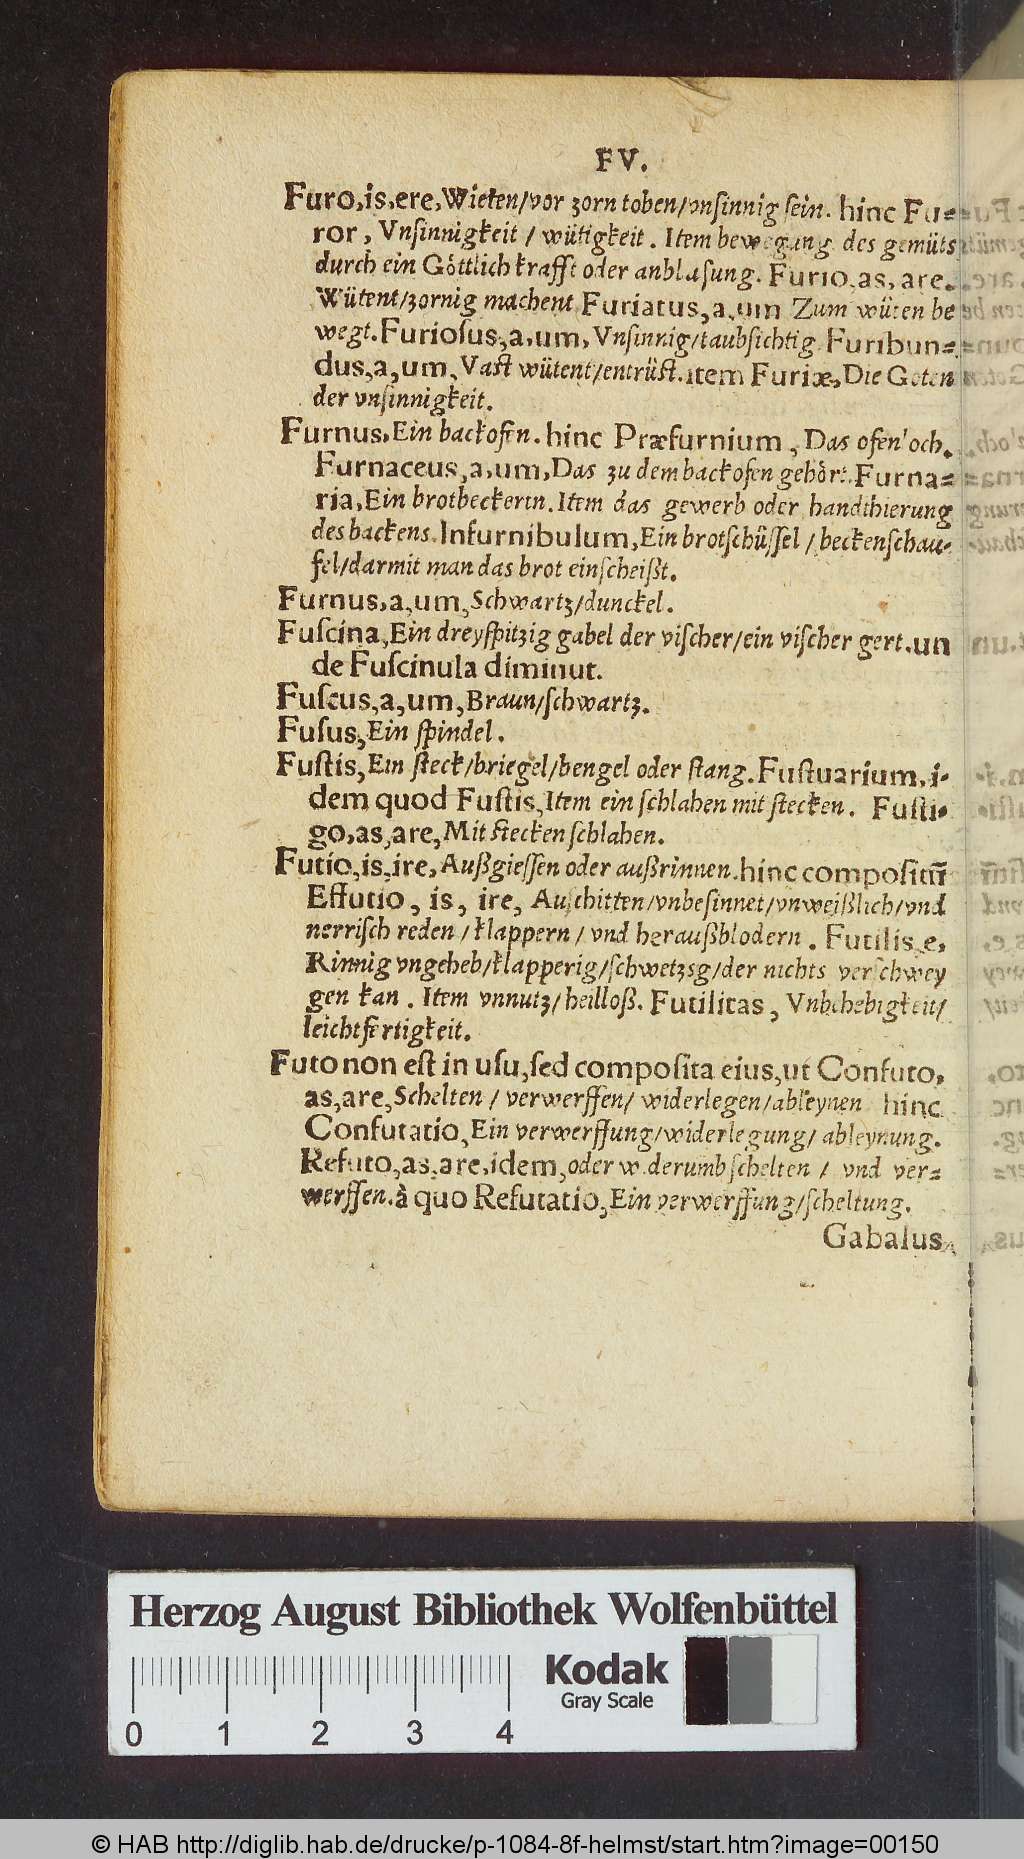 FV.
Furo,is,ere,Wieten/vor zorn toben/vnſinnig ſein. hinc Fu-
ror, Vnſinnigkeit / wütigkeit. Item bewegung des gemüts
durch ein Göttlich krafft oder anblaſung. Furio,as, are.
Wütent/zornig machent Furiatus,a,um Zum wüten be
wegt. Furioſus,a,um, Vnſinnig/taubſichtig Furibun-
dus,a,um, Vaſt wütent/entrüſt. item Furiæ, Die Goten
der vnſinnigkeit.
Furnus, Ein backofen. hinc Præfurnium, Das ofenloch.
Furnaceus,a,um, Das zu dem backofen gehört. Furna-
ria, Ein brotbeckerin. Item das gewerb oder handthierung
des backens. Infurnibulum, Ein brotſchüſſel / beckenſchau-
fel/darmit man das brot einſcheißt.
Furnus,a,um, Schwartz/dunckel.
Fuſcina, Ein dreyſpitzig gabel der viſcher/ein viſcher gert. un
de Fuſcinula diminut.
Fuſcus,a,um, Braun/ſchwartz.
Fuſus, Ein ſpindel.
Fuſtis, Ein ſteck/briegel/bengel oder ſtang. Fuſtuarium, i-
dem quod Fuſtis, Item ein ſchlahen mit ſtecken. Fuſti-
go,as,are, Mit ſtecken ſchlahen.
Futio,is,ire, Außgieſſen oder außrinnen. hinc compoſitũ
Effutio, is, ire, Auſchitten/vnbeſinnet/vnweißlich/vnd
nerriſch reden / klappern / vnd heraußblodern. Futilis,e,
Rinnig vngeheb/klapperig/ſchwetzſg/der nichts verſchwey
gen kan. Item vnnutz/heilloß. Futilitas, Vnbehebigkeit/
leichtfertigkeit.
Futo non eſt in uſu, ſed compoſita eius, ut Confuto,
as,are, Schelten / verwerffen/ widerlegen/ableynen hinc
Confutatio, Ein verwerffung/widerlegung/ ableynung.
Refuto,as,are, idem, oder widerumb ſchelten / vnd ver-
werffen. à quo Refutatio, Ein verwerffung/ſcheltung.
Gabalus
Herzog August Bibliothek Wolfenbüttel
Kodak
Gray Scale
0 1 2 3 4
© HAB http://diglib.hab.de/drucke/p-1084-8f-helmst/start.htm?image=00150